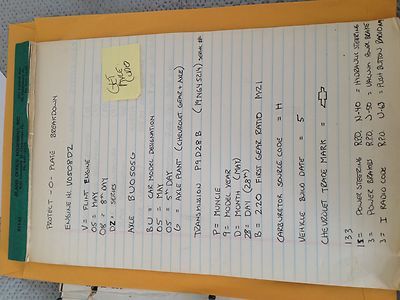 GET
TYPE
INFO
PROTECT-O-PLATE BREAKDOWN
ENGINE Nº V0508DZ
V = FLINT ENGINE
05 = MAY
08 = 8TH DAY
DZ = SERIES
AXLE BU0505G
BU = CAR MODEL DESIGNATION
05 = MAY
05 = 5TH DAY
G = AXLE PLANT (CHEVROLET GEAR & AXLE)
TRANSMISSION P9D28B
P = MUNCIE
9 = MODEL YEAR
D = MONTH (MAY)
28 = DAY (28TH)
B = 2.20 FIRST GEAR RATIO M21
CARBURETOR SOURCE CODE = H
VEHICLE BUILD DATE = 5
CHEVROLET TRADE MARK =
133
1 = POWER STEERING RPO N-40 = HYDRAULIC STEERING
3 = POWER BRAKES RPO J-50 = VACUUM POWER BRAKE
3 = I RADIO CODE RPO U-63 = PUSH BUTTON